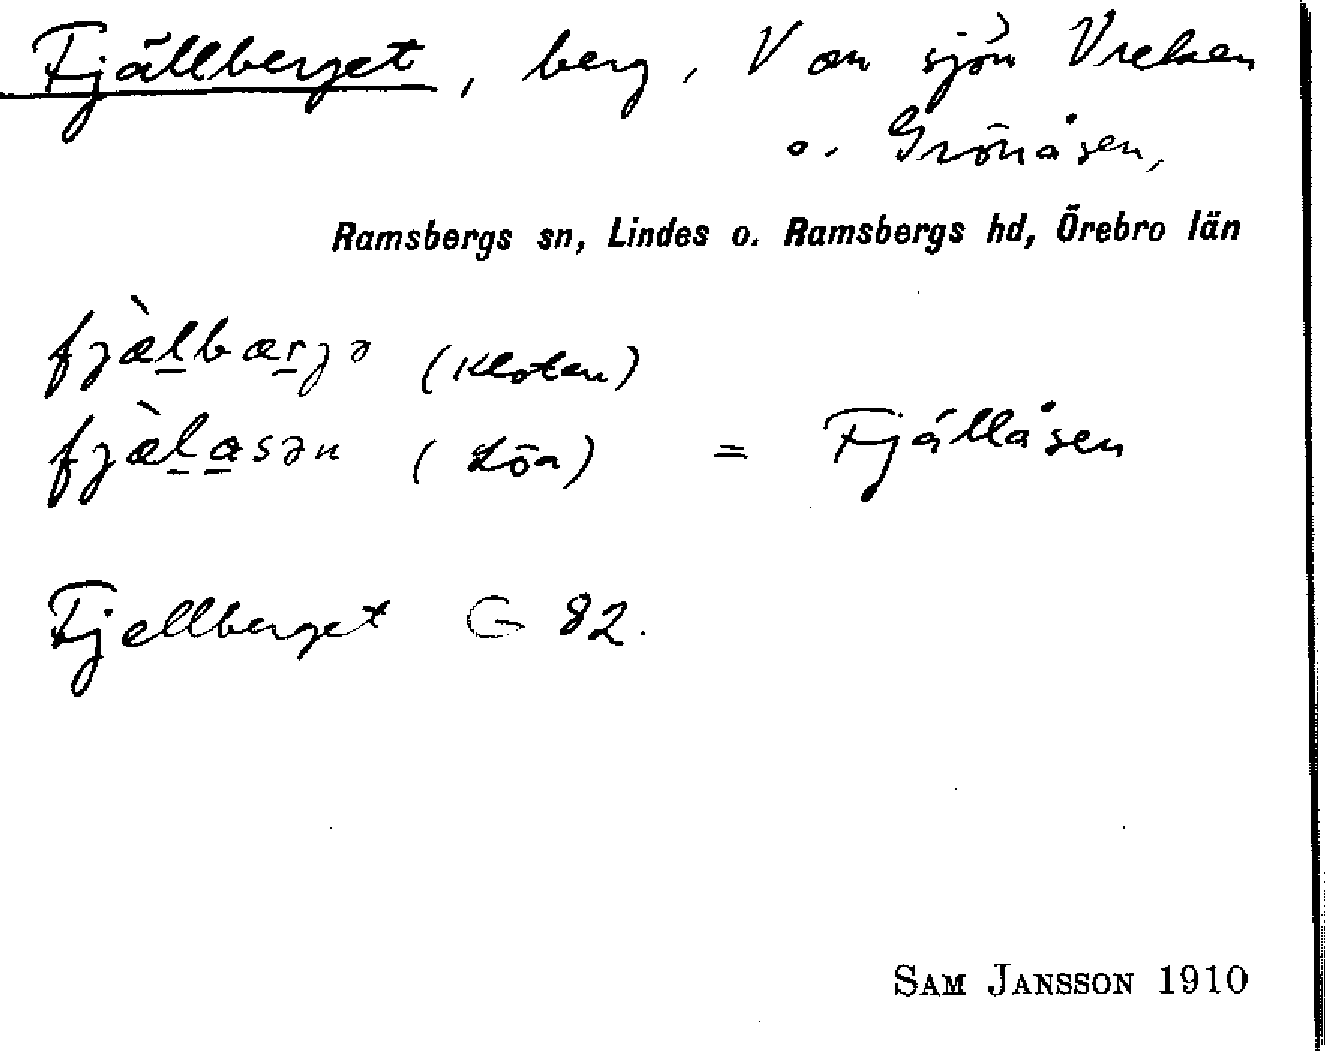 Fjällberget, berg, V om sjön Vreken
o. Grönåsen,
Ramsbergs sn, Lindes o. Ramsbergs hd, Örebro län
fjæ̀lbærjə (Kloten)
fjæ̀lasən (Löa) = Fjällåsen
Fjellberget G 82.
SAM JANSSON 1910